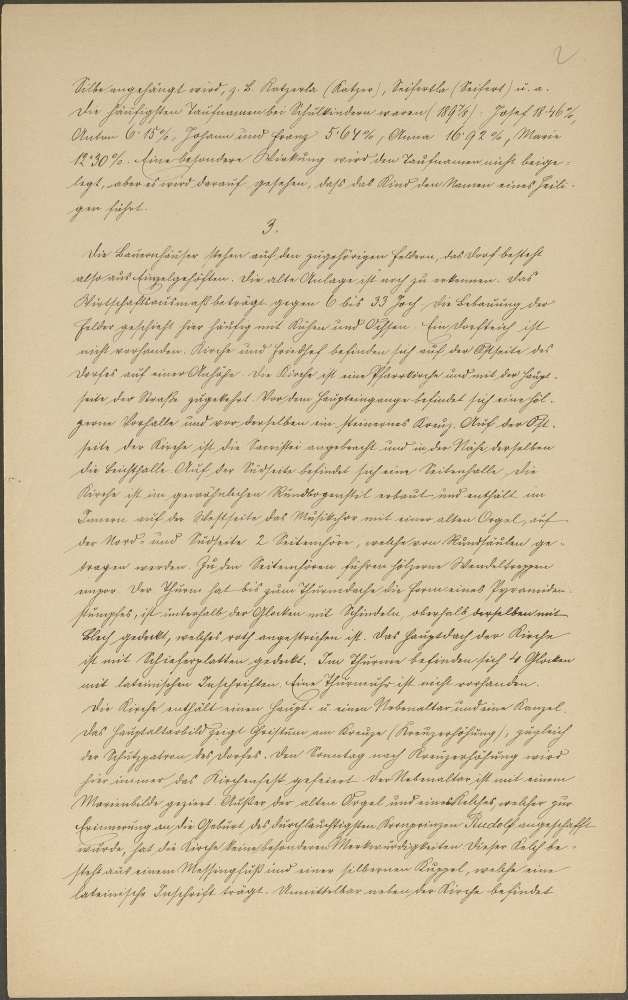 2
Silbe angehängt wird, z. B. Katzerla (Katzer), Seifertla (Seifert) u. a.
Die häufigsten Taufnamen bei Schulkindern waren (1896): Josef 18·46%,
Anton 6·15%, Johann und Franz 5·64%, Anna 16·92%, Marie
12·30%. Eine besondere Wirkung wird den Taufnamen nicht beige-
legt, aber es wird darauf gesehen, dass das Kind den Namen eines Heili-
gen führt.
3.
Die Bauernhäuser stehen auf den zugehörigen Feldern, das Dorf besteht
also aus Einzelgehöften. Die alte Anlage ist noch zu erkennen. Das
Wirtschaftsausmaß beträgt gegen 6 bis 33 Joch. Die Bebauung der
Felder geschieht hier häufig mit Kühen und Ochsen. Ein Dorfteich ist
nicht vorhanden. Kirche und Friedhof befinden sich auf der Ostseite des
Dorfes auf einer Anhöhe. Die Kirche ist eine Pfarrkirche und mit der Haupt-
seite der Straße zugekehrt. Vor dem Haupteingange befindet sich eine höl-
zerne Vorhalle und vor derselben ein steinernes Kreuz. Auf der Ost-
seite der Kirche ist die Sacristei angebracht und in der Nähe derselben
die Beichthalle. Auf der Südseite befindet sich eine Seitenhalle. Die
Kirche ist im gewöhnlichen Rundbogenstil erbaut und enthält im
Innern auf der Westseite das Musikchor mit einer alten Orgel, auf
der Nord- und Südseite 2 Seitenchöre, welche von Rundsäulen ge-
tragen werden. Zu den Seitenchören führen hölzerne Wendeltreppen
empor. Der Thurm hat bis zum Thurmdache die Form eines Pyramiden-
stumpfes, ist unterhalb der Glocken mit Schindeln, oberhalb derselben mit
Blech gedeckt, welches roth angestrichen ist. Das Hauptdach der Kirche
ist mit Schieferplatten gedeckt. Im Thurme befinden sich 4 Glocken
mit lateinischen Inschriften. Eine Thurmuhr ist nicht vorhanden.
Die Kirche enthält einen Haupt- u. einen Nebenaltar und eine Kanzel.
Das Hauptaltarbild zeigt Christum am Kreuze (Kreuzerhöhung), zugleich
der Schutzpatron des Dorfes. Den Sonntag nach Kreuzerhöhung wird
hier immer das Kirchenfest gefeiert. Der Nebenaltar ist mit einem
Marienbilde geziert. Außer der alten Orgel und eines Kelches, welcher zur
Erinnerung an die Geburt des durchlauchtigsten Kronprinzen Rudolf angeschafft
wurde, hat die Kirche keine besonderen Merkwürdigkeiten. Dieser Kelch be-
steht aus einem Messingfuß und einer silbernen Kuppel, welche eine
lateinische Inschrift trägt. Unmittelbar neben der Kirche befindet